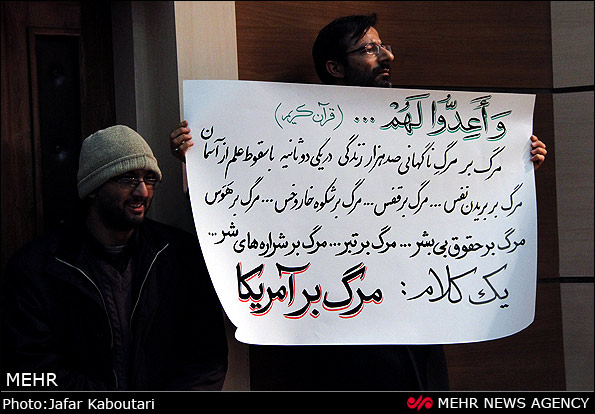 وَأَعِدُّوا لَهُمْ ... (قرآن کریم)
مرگ بر مرگِ ناگهانی صد هزار زندگی در یکی دو ثانیه با سقوط علم از آسمان
مرگ بر بریدن نفس ... مرگ بر قفس ... مرگ بر شکوه خار و خس ... مرگ بر هوس
مرگ بر حقوق بی بشر ... مرگ بر تبر ... مرگ بر شراره های شر ...
یک کلام : مرگ بر آمریکا
MEHR
Photo:Jafar Kaboutari
MEHR NEWS AGENCY